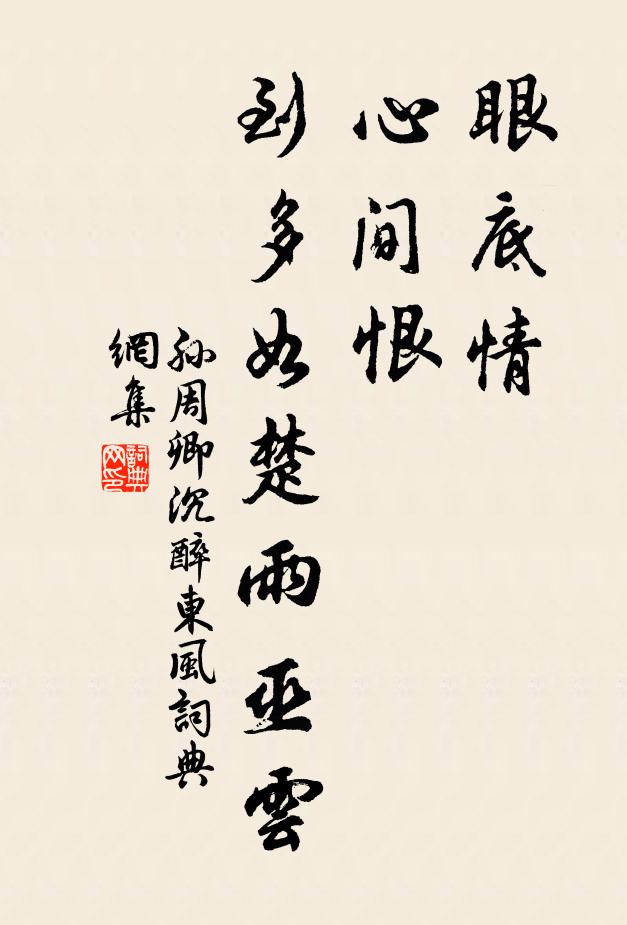 眼底情
心間恨
到多如楚雨巫雲
孫周卿沉醉東風詞典
網集
詞典網印